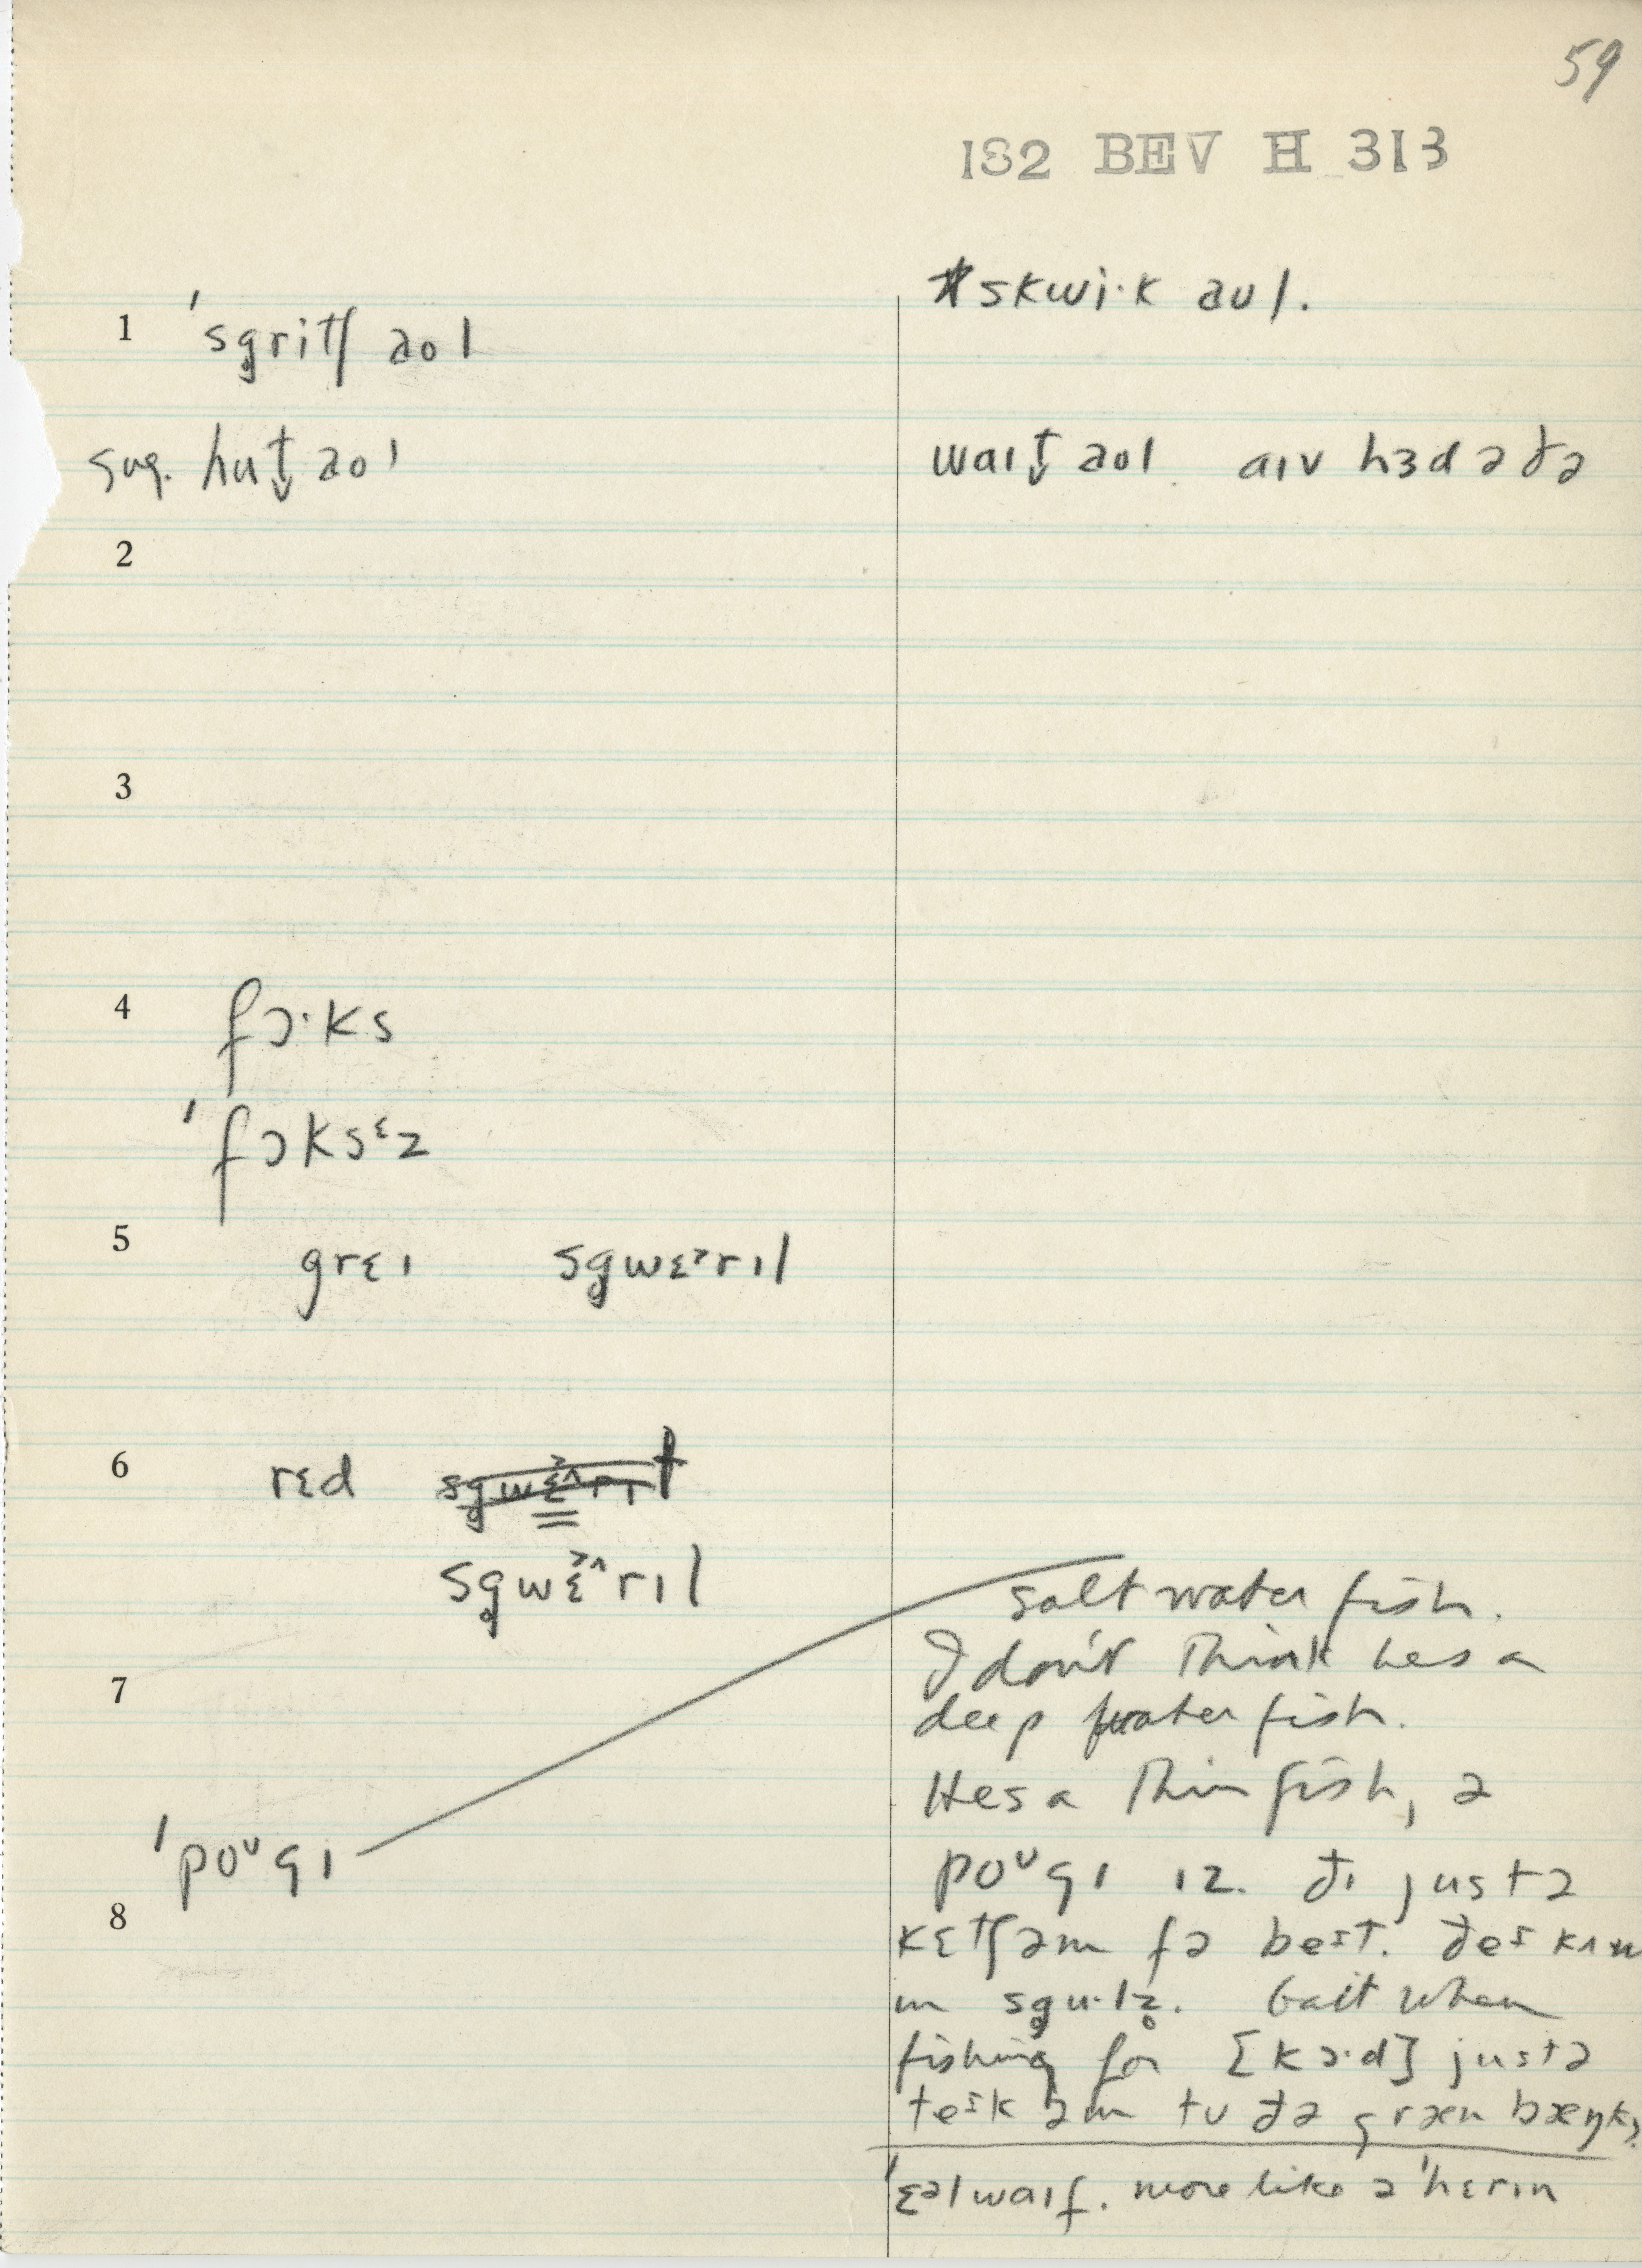 59
182 BEV H 313
*skwi·k aʊl.
1 ˈsg̥ritʃ aol
sug. hut̬ aol
waɪt̬ aol. aɪv hɜd ə ðə
2
3
4 fɔ·ks
ˈfɔksᵋz
5 grɛɪ sg̥wɛᵊrɪl
6 rɛd
sg̥wɛ˃˄rɪl
salt water fish.
I don't think hes a
7
deep water fish.
Hes a thin fish, ə
ˈpoᵘgɪ
poᵘgɪ ɪz. ðɪ just ə
8
kɛtʃəm fə beɪt. ðeɪ kʌm
ɪn sg̥u·lz̥. bait when
fishing for [kɔ·d] just ə
teɪk əm tʊ ðə græn bæŋks.
ˈɛᵊlwaɪf. more like ə ˈhɛrɪn